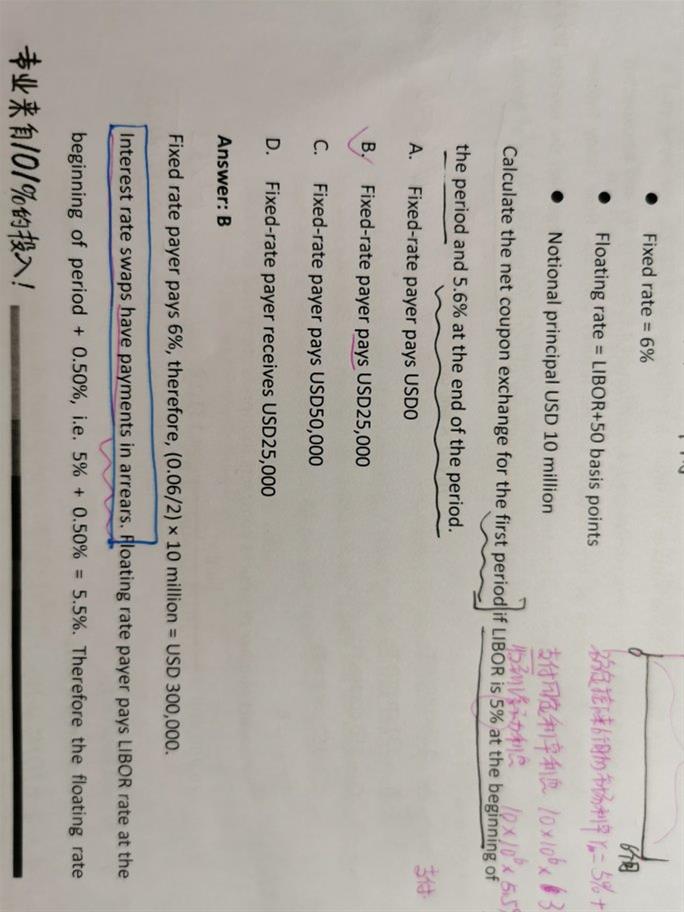 ● Fixed rate = 6%
● Floating rate = LIBOR+50 basis points
● Notional principal USD 10 million
Calculate the net coupon exchange for the first period if LIBOR is 5% at the beginning of
the period and 5.6% at the end of the period.
A. Fixed-rate payer pays USD0
B. Fixed-rate payer pays USD25,000
C. Fixed-rate payer pays USD50,000
D. Fixed-rate payer receives USD25,000
Answer: B
Fixed rate payer pays 6%, therefore, (0.06/2) × 10 million = USD 300,000.
Interest rate swaps have payments in arrears. Floating rate payer pays LIBOR rate at the
beginning of period + 0.50%, i.e. 5% + 0.50% = 5.5%. Therefore the floating rate
专业来自101%的投入!
0
支付固定利率利息 10×10⁶×
10×10⁶×5.5%
支付